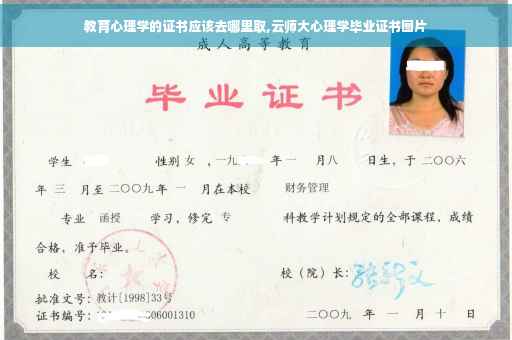 教育心理学的证书应该去哪里取,云师大心理学毕业证书图片
成人高等教育
毕业证书
学生 性别 女 ,一九 年一 月八 日生，于二〇〇六
年 三 月至二〇〇九年 一 月在本校 财务管理
专业 函授 学习，修完 专 科教学计划规定的全部课程，成绩
合格，准予毕业。
校 名： 校（院）长：
批准文号：教计[1998]33号
证书编号： 06001310 二〇〇九 年 一 月 十 日